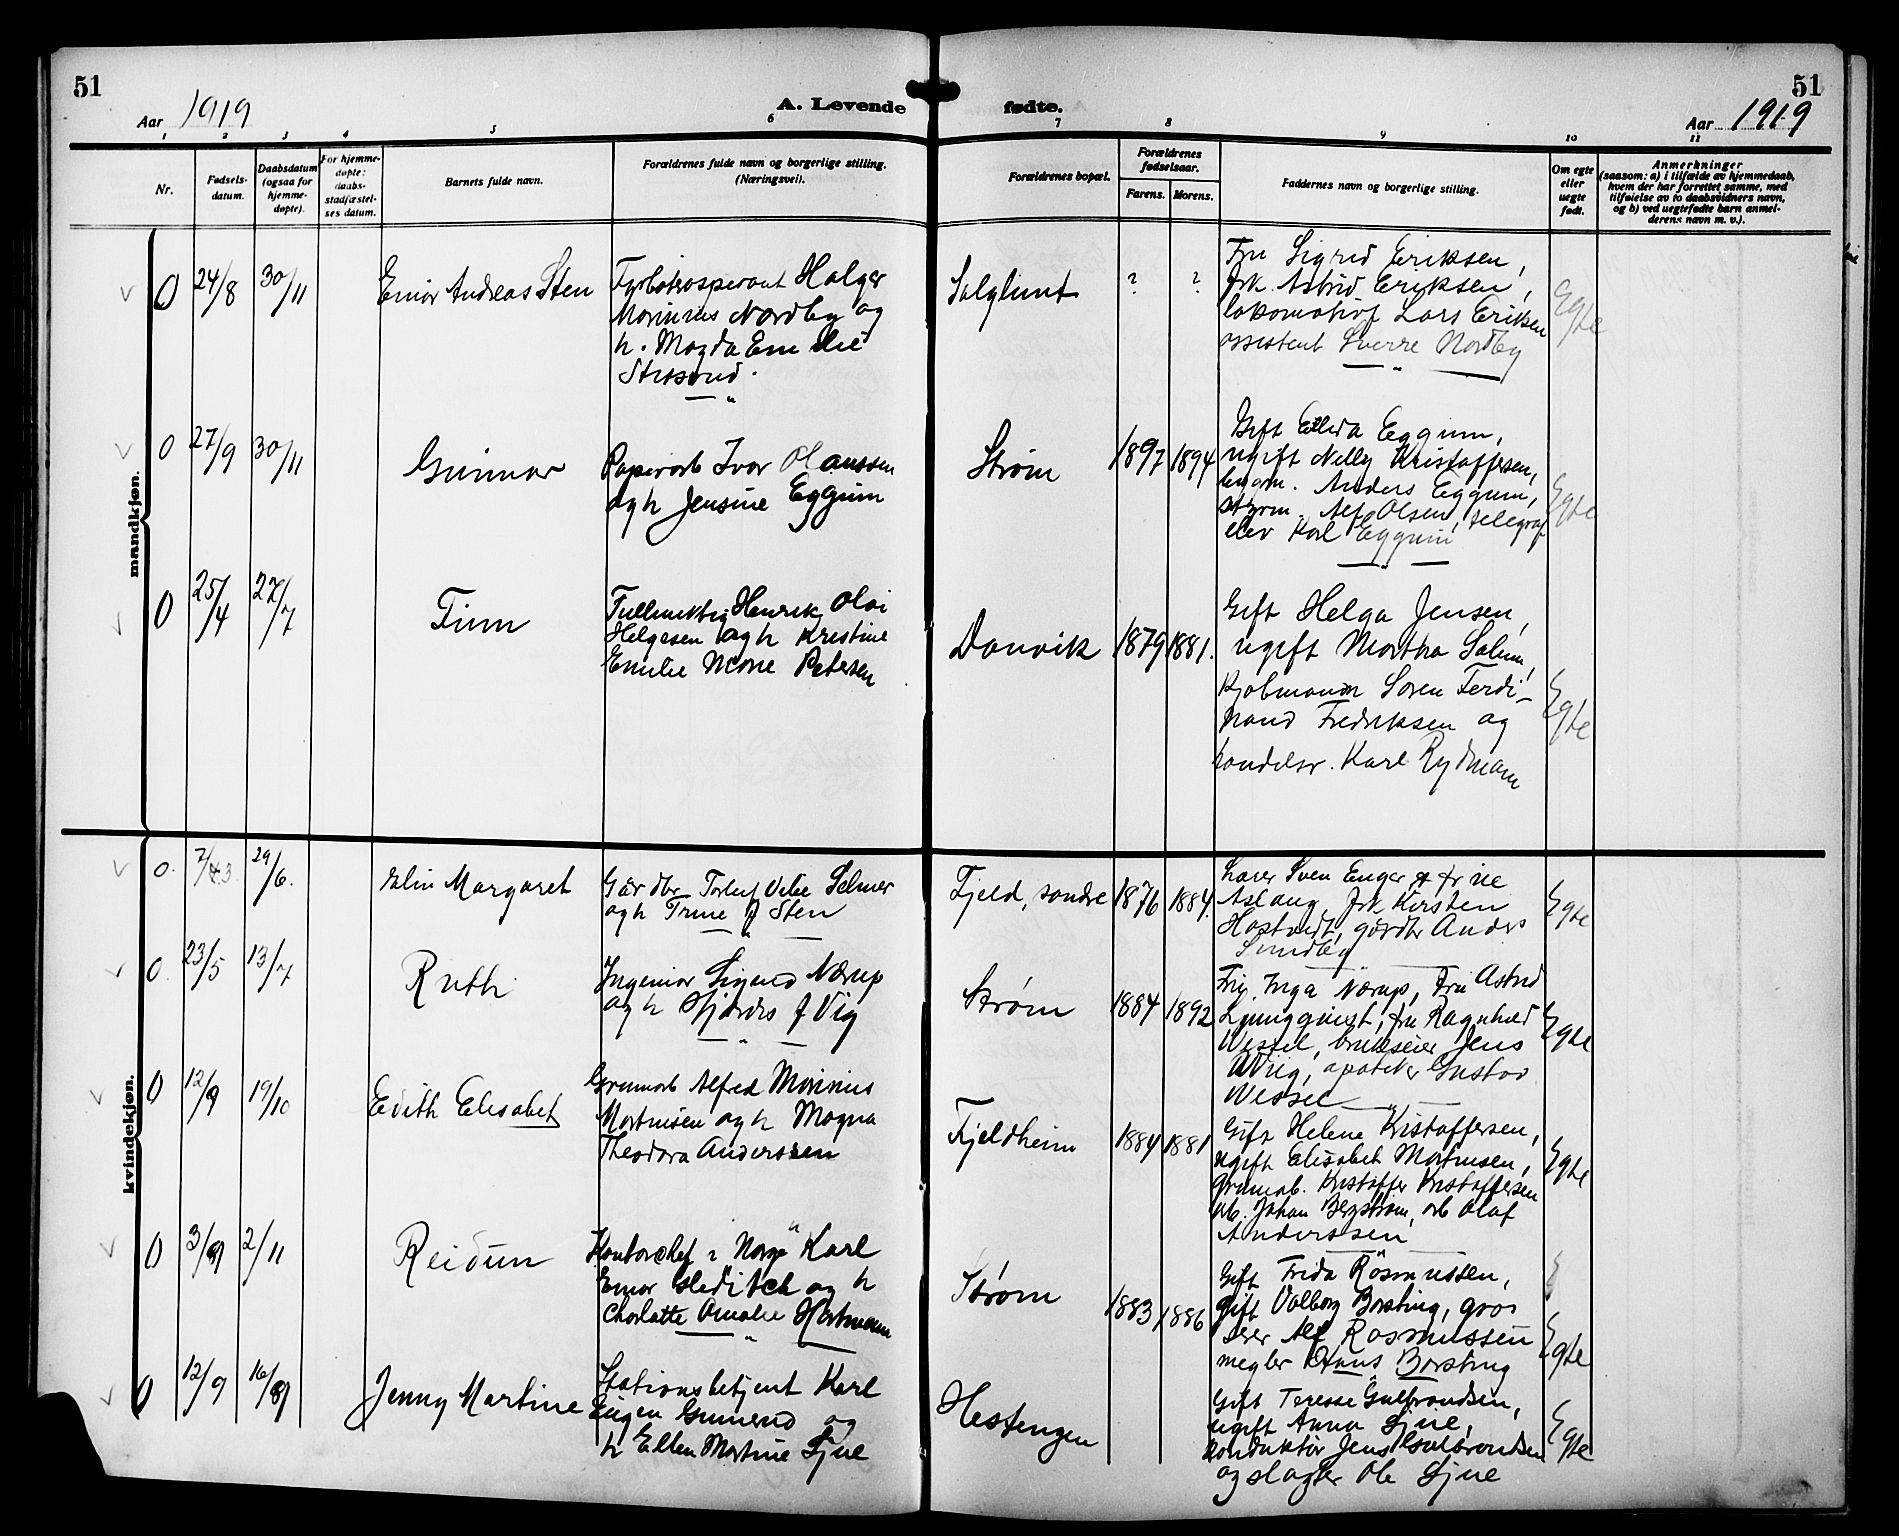 51
51
Aar 1919
A. Levende
fødte.
Aar 1919
1 2 3 4 5 6
7 8 9 10 11
Nr.
Fødsels-
datum.
Daabsdatum
(ogsaa for
hjemme-
døpte).
For hjemme-
døpte:
daabs-
stadfæstel-
ses datum.
Barnets fulde navn.
Forældrenes fulde navn og borgerlige stilling.
(Næringsvei).
Forældrenes bopæl.
Forældrenes
fødselsaar.
Farens.
Morens.
Faddernes navn og borgerlige stilling.
Om egte
eller
uegte
født.
Anmerkninger
(saasom: a) i tilfælde av hjemmedaab,
hvem der har forrettet samme, med
tilføielse av to daabsvidners navn,
og b) ved uegtefødte barn anmel-
derens navn m. v.).
mandkjøn.
0 24/8 30/11
Einar Andreas Sten
Holger
Marinius Nordby og
h. Magda Emelie
Solglimt
? ?
Fru Sigrid Eriksen,
frk. Astrid Eriksen,
lokomotivf Lars Eriksen
assistent Sverre Nordby
Egte
0 27/9 30/11
Gunnar
Papirarb Ivar Olaussen
og h Jensine Eggum
Strøm
1897 1894
Gift Elida Eggum,
ugift Nelly Kristoffersen,
Anders Eggum,
styrm. Alf Olsen, telegraf
elev Karl Eggum
Egte
0 25/4 27/7
Finn
Fullmektig Henrik Olai
Helgesen og h Kristine
Emilie Marie Petersen
Danvik
1879 1881.
Gift Helga Jensen,
ugift Martha Salum,
Kjøbmann Søren Ferdi-
nand Fredriksen og
handelsr. Karl Rydmann
Egte
kvindekjøn.
0. 7/3 29/6.
Elin Margaret
Gårdbr Torleif Vebe Selmer
og h Trine f Sten
Fjeld, søndre
1876 1884.
Lærer Sven Enger
Aslaug, frk. Kirsten
gårdbr Anders
Sundby
Egte
0. 23/5 13/7
Ruth
Ingeniør Sigurd Nærup
og h Hjørdis f Vig
Strøm
1884 1892
Frk. Inga Nærup, Fru Astrid
Ljungqvist, fru Ragnhild
Wessel, brukseier Jens
Wiig, apoteker Gustav
Wessel
Egte
0 12/9 19/10
Edith Elisabet
Grubearb Alfred Marinius
Martinisen og h Magna
Theodora Anderssen
Fjeldheim
1884 1881
Gift Helene Kristoffersen,
ugift Elisabet Martinisen,
Kristoffer Kristoffersen
arb. Johan Bergstrøm, arb Olaf
Anderssen
Egte
0 3/9 2/11
Reidun
Kontorchef i "Norge" Karl
Einar Gleditch og h
Charlotte Amalie Hartmann
Strøm
1883 1886
Gift Frida Rasmussen,
gift Valborg Børsting, gros
serer Alf Rasmussen
megler Hans Børsting
Egte
0 12/9 16/9
Jenny Martine
Stationsbetjent Karl
Eugen Gunnerud og
h Ellen Martine Sjue
Hestengen
Gift Terese Gulbrandsen,
ugift Anna Sjue,
konduktør Jens Gulbrandsen
og slagter Ole Sjue
Egte